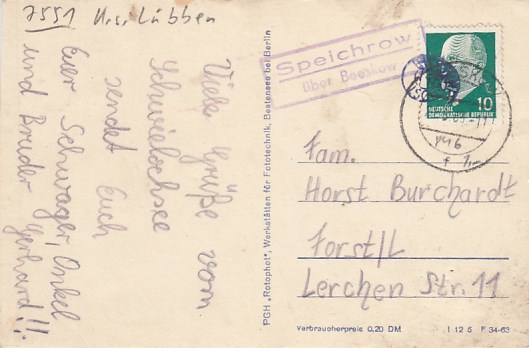 7551 Krs. Lübben
Viele Grüße vom
Schwielochsee
sendet Euch
Euer Schwager, Onkel
und Bruder
Gerhard!!
PGH „Rotophot“, Werkstätten für Fototechnik, Bestensee bei Berlin
Speichrow
über Beeskow
10
DEUTSCHE
DEMOKRATISCHE REPUBLIK
Fam.
Horst Burchardt
Forst/L
Lerchen Str. 11
Verbraucherpreis 0,20 DM
I 12 5 F 34-63